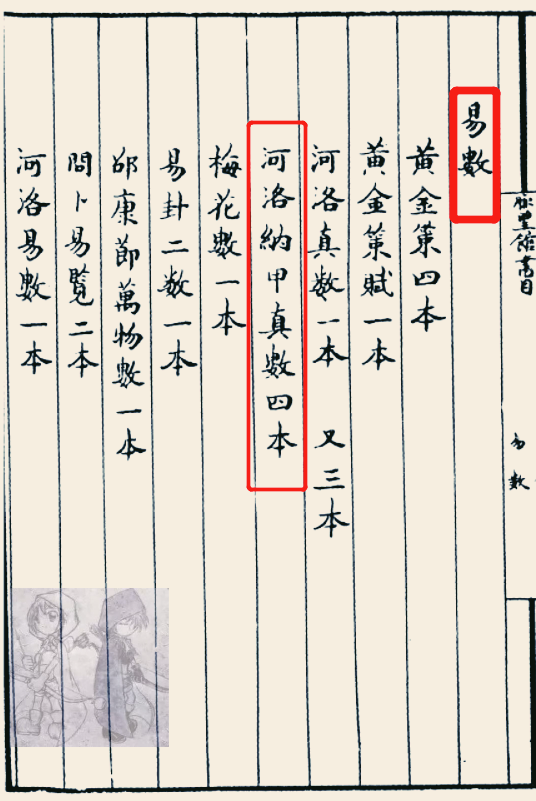 脉望館書目
易數
易數
黄金策四本
黄金策賦一本
河洛真数一本 又三本
河洛納甲真數四本
梅花數一本
易卦二数一本
邵康節萬物數一本
問卜易覧二本
河洛易數一本